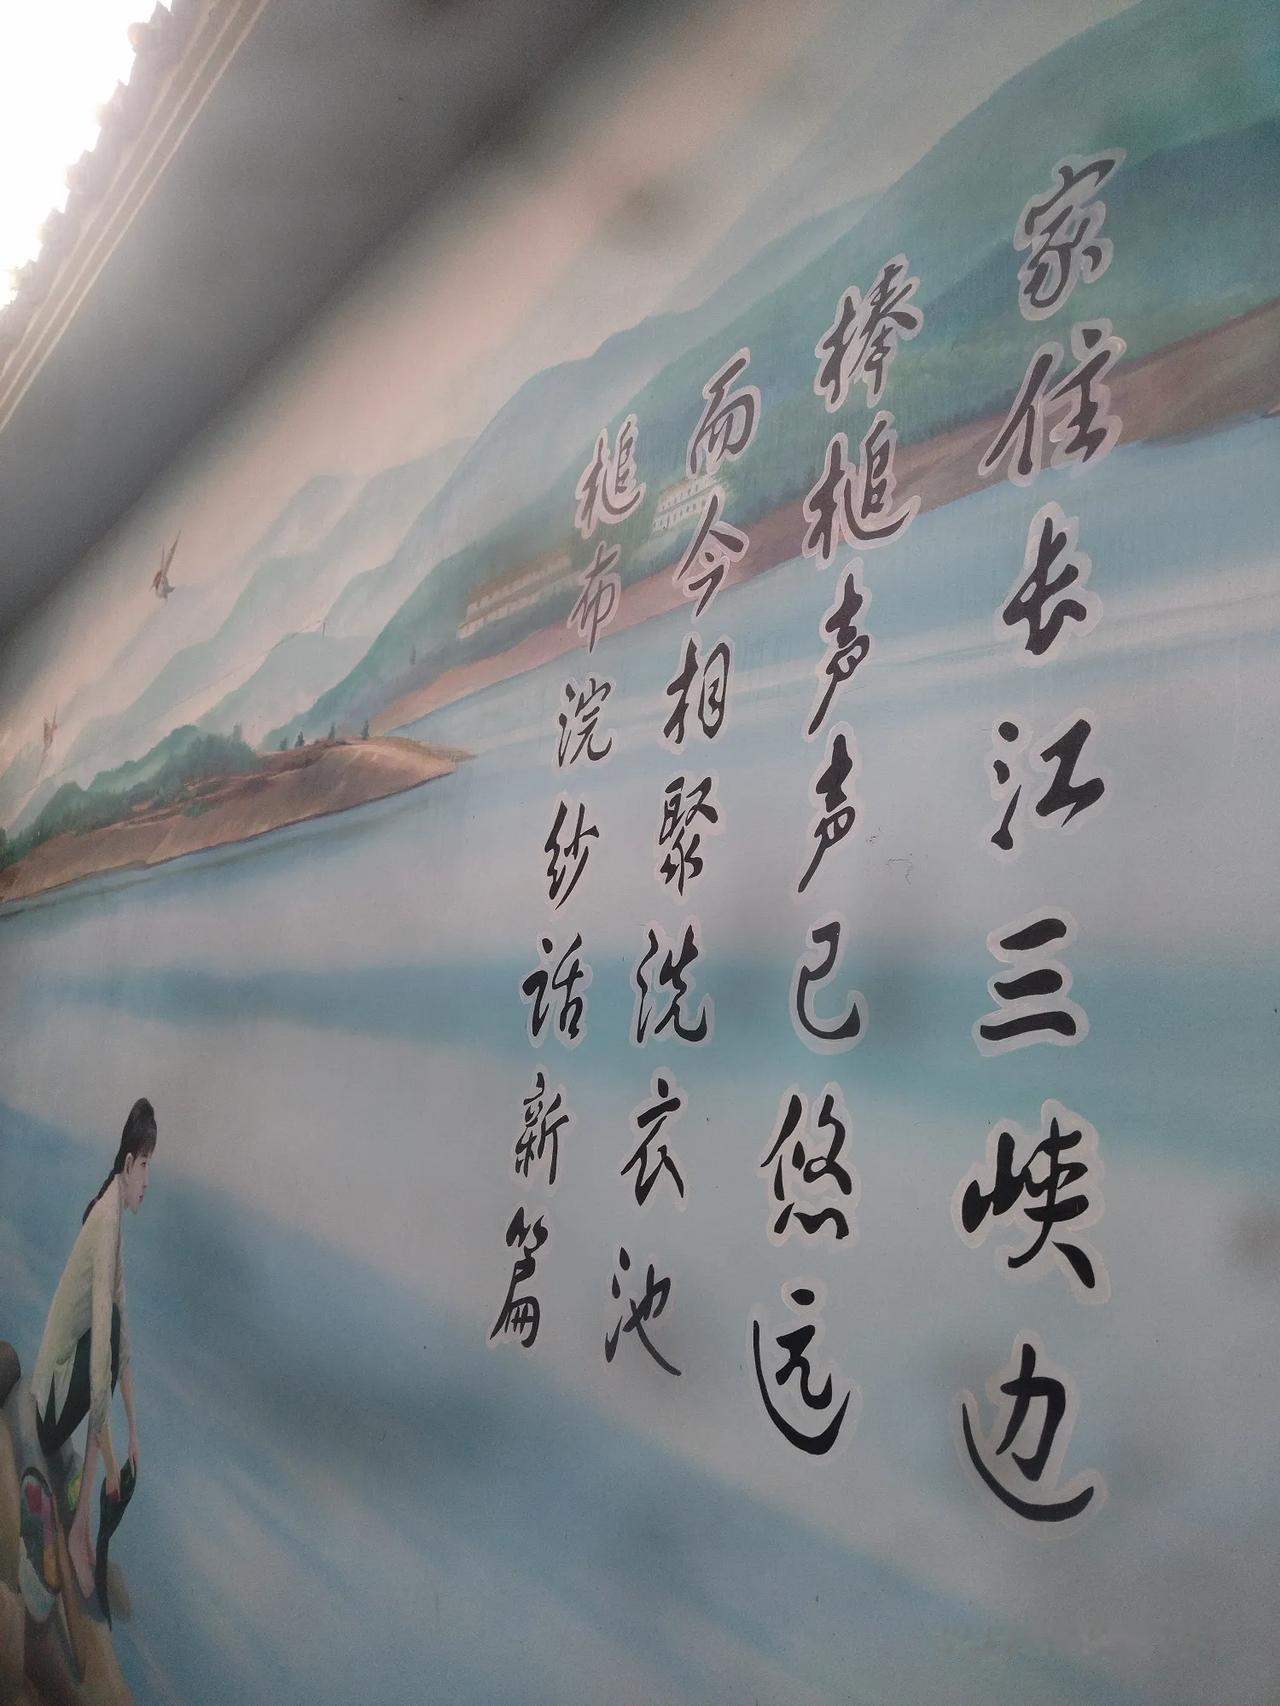 家住长江三峡边
棒槌声声已悠远
而今相聚洗衣池
槌布浣纱话新篇